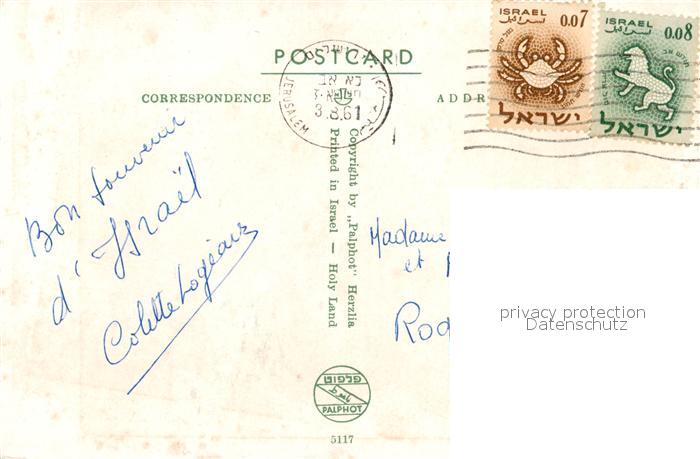 POSTCARD
CORRESPONDENCE
ADD
JERUSALEM
3.8.61
כא אב
ISRAEL
0.07
ישראל
ISRAEL
0.08
ישראל
Bon souvenir
d'Israël
Colette
Copyright by „Palphot" Herzlia
Printed in Israel — Holy Land
Madame
et
פלפוט
PALPHOT
5117
privacy protection
Datenschutz